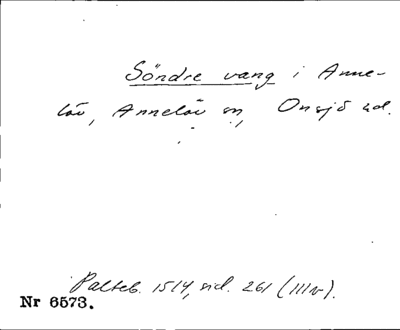 Söndre vang i Anne-
löv, Annelöv sn, Onsjö hd.
Palteb. 1514, sid. 261 (IIIv).
Nr 6573.